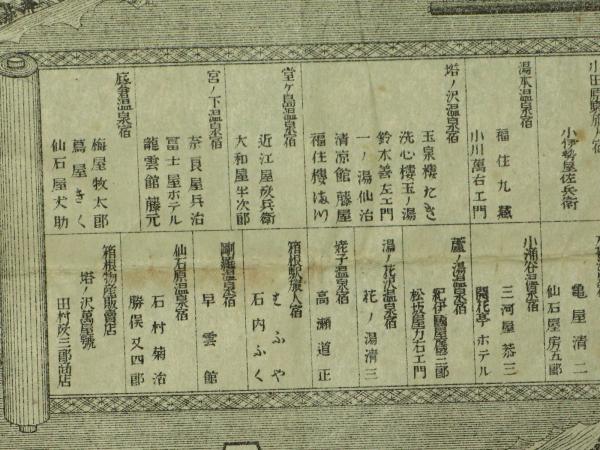 小田原駅旅人宿
小伊勢屋佐兵衛
湯本温泉宿
福住九蔵
小川萬右エ門
塔ノ沢温泉宿
玉泉樓たき
洗心樓玉ノ湯
鈴木善左エ門
一ノ湯仙治
清凉館藤屋
福住樓
堂ヶ島温泉宿
近江屋政兵衛
大和屋半次郎
宮ノ下温泉宿
奈良屋兵治
冨士屋ホテル
龍雲館藤元
底倉温泉宿
梅屋牧太郎
蔦屋きく
仙石屋丈助
亀屋清二
仙石屋房五郎
小涌谷温泉宿
三河屋恭三
開花亭ホテル
蘆ノ湯温泉宿
紀伊國屋儀三郎
松坂屋万右エ門
湯ノ花沢温泉宿
花ノ湯清三
姥子温泉宿
高瀬道正
箱根駅旅人宿
はふや
石内ふく
剛羅温泉宿
早雲館
仙石原温泉宿
石村菊治
勝俣又四郎
箱根物産販賣店
塔ノ沢萬屋號
田村政三郎商店